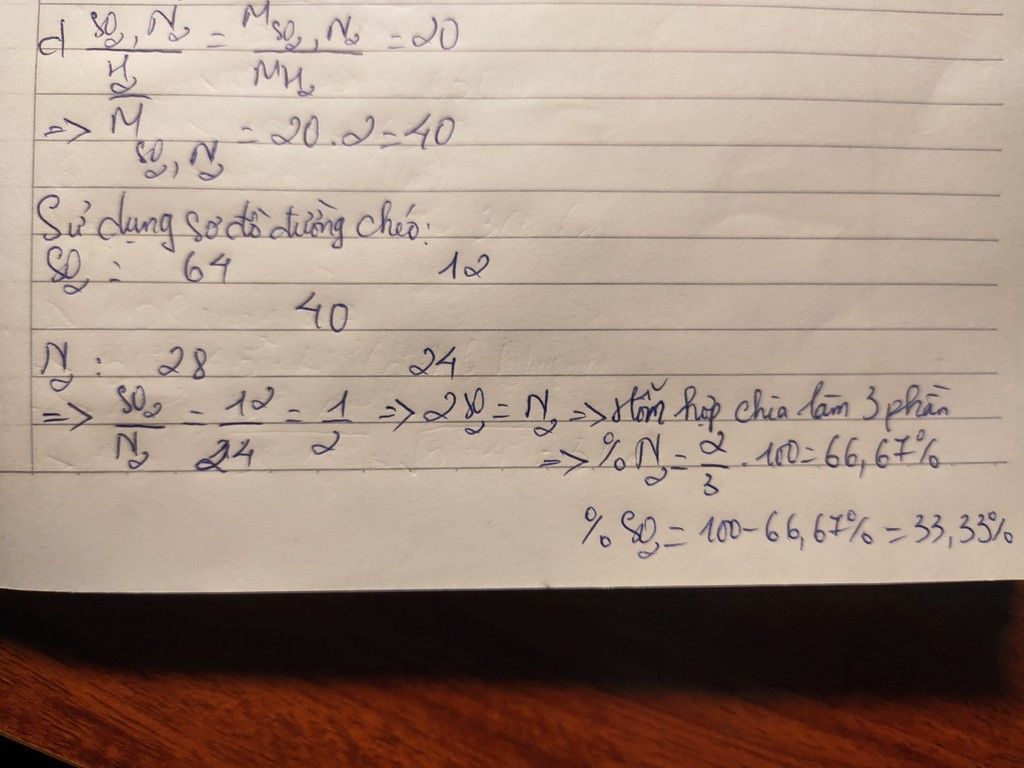 d SO₂, N₂ / H₂ = M SO₂, N₂ / MH₂ = 20
=> M SO₂, N₂ = 20.2 = 40
Sử dụng sơ đồ đường chéo:
SO₂ : 64 12
40
N₂ : 28 24
=> SO₂ / N₂ = 12 / 24 = 1 / 2 => 2SO₂ = N₂ => Hỗn hợp chia làm 3 phần
=> % N₂ = 2 / 3 . 100 = 66,67%
% SO₂ = 100 - 66,67% = 33,33%